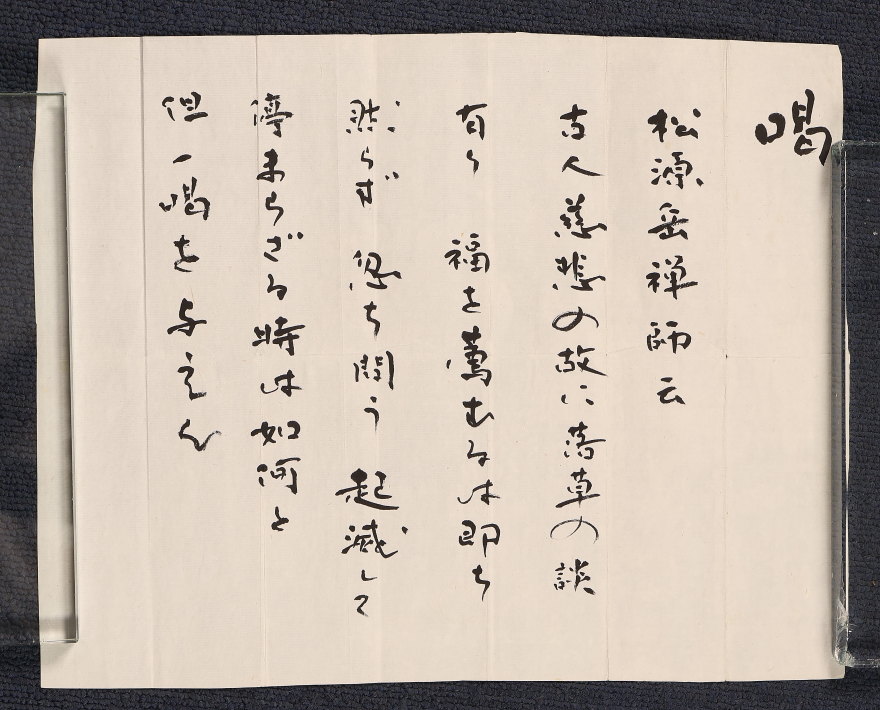 喝
松源岳禅師云
古人慈悲の故に落草の談
有り 福を薦むるは即ち
然らず 忽ち問う 起滅して
停まらざる時は如何と
但一喝を与えん